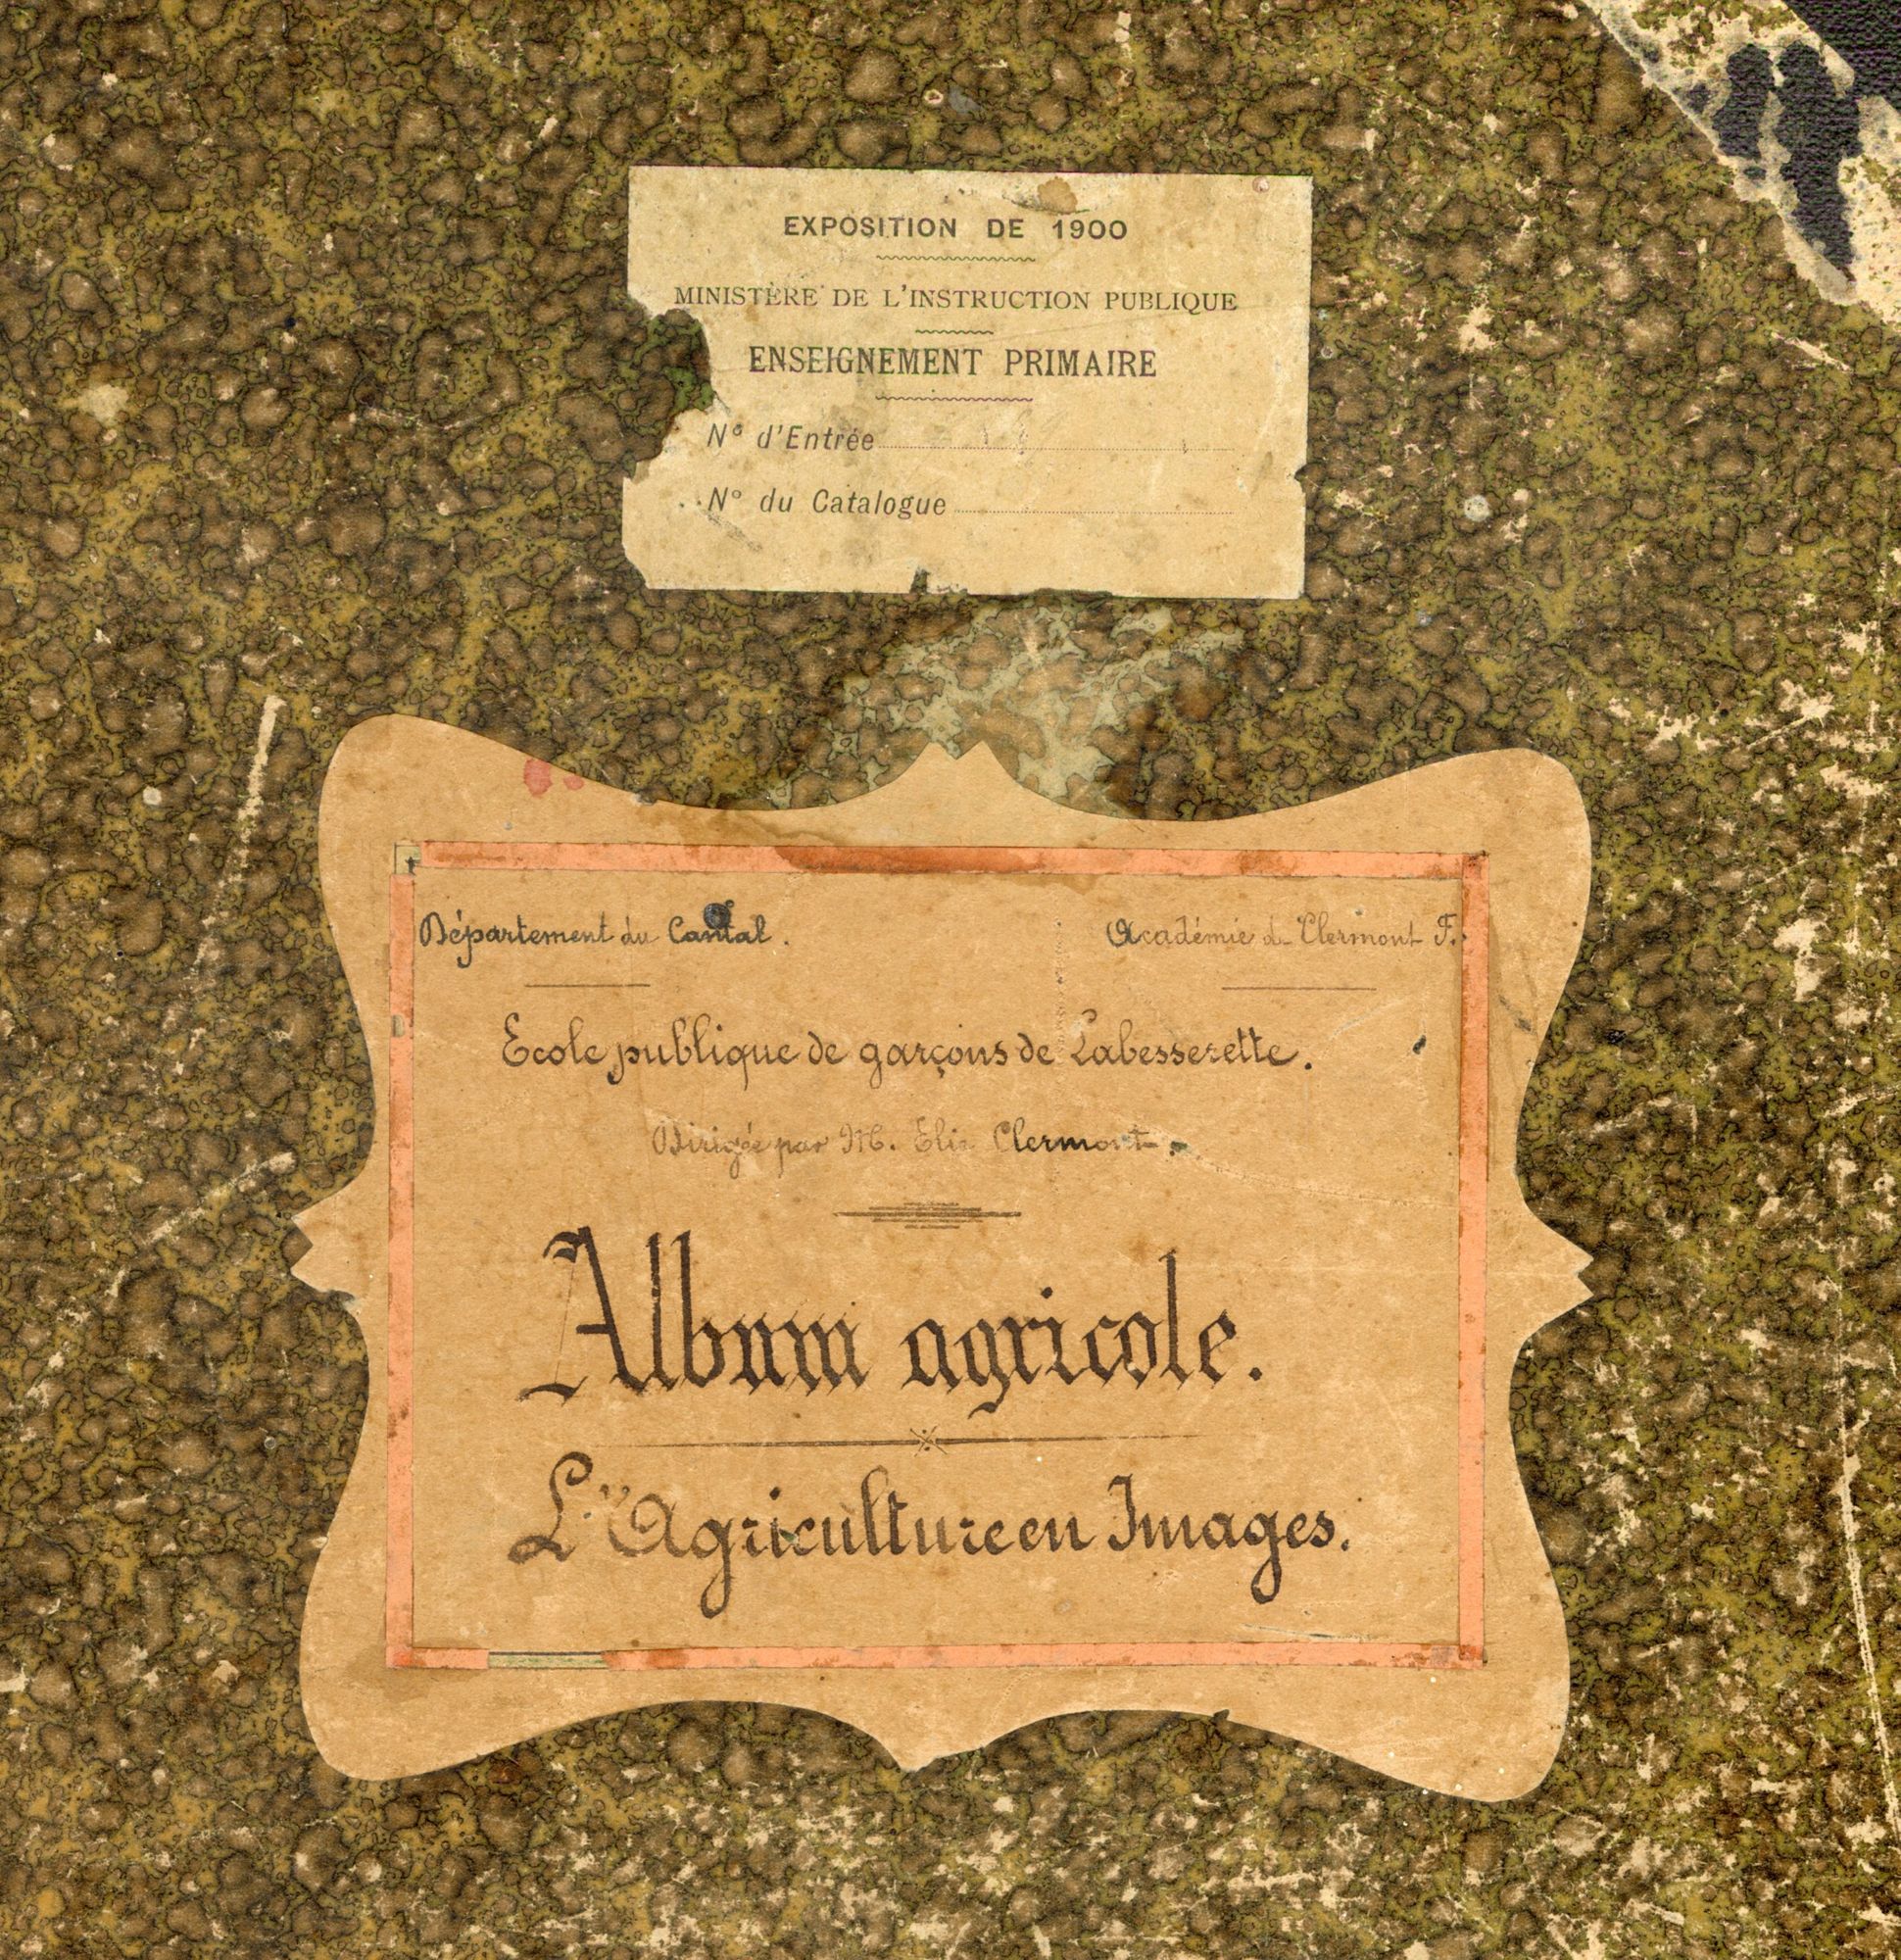 EXPOSITION DE 1900
MINISTÈRE DE L'INSTRUCTION PUBLIQUE
ENSEIGNEMENT PRIMAIRE
N° d'Entrée
N° du Catalogue
Département du Cantal.
Académie de Clermont F.
Ecole publique de garçons de Labesserette.
Dirigée par M. Elie Clermont.
Album agricole.
L'Agriculture en Images.